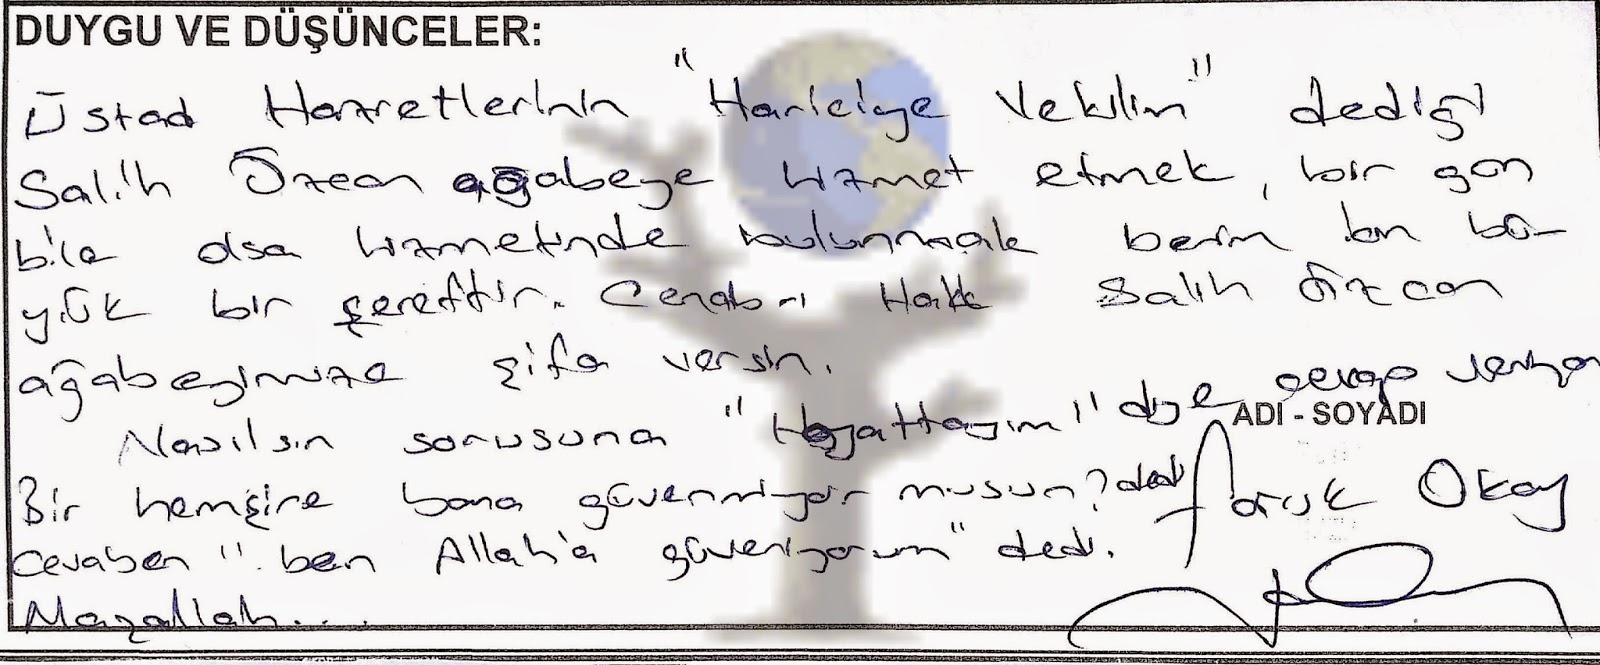 DUYGU VE DÜŞÜNCELER:
Üstad Hazretlerinin "Hariciye Vekilim" dediği
Salih Özcan ağabeye hizmet etmek, bir gün
bile olsa hizmetinde bulunmak benim için bü-
yük bir şereftir. Cenab-ı Hakk Salih Özcan
ağabeyimize şifa versin.
Nasılsın sorusuna "Hayattayım" diye cevap veriyor
ADI - SOYADI
Bir hemşire bana güvenmiyor musun? dedi
Faruk Okay
cevaben "ben Allah'a güveniyorum" dedi.
Maşallah....